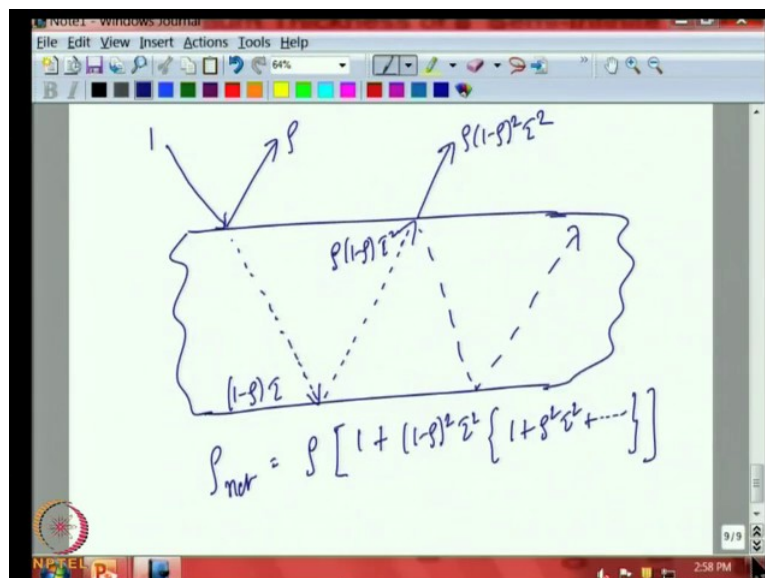 Note1 - Windows Journal
File Edit View Insert Actions Tools Help
64%
B I
1 ρ ρ(1-ρ)²τ²
ρ(1-ρ)τ²
(1-ρ)τ
ρnet = ρ[1 + (1-ρ)²τ²{1 + ρ²τ² + ----}]
9/9
NPTEL
2:58 PM